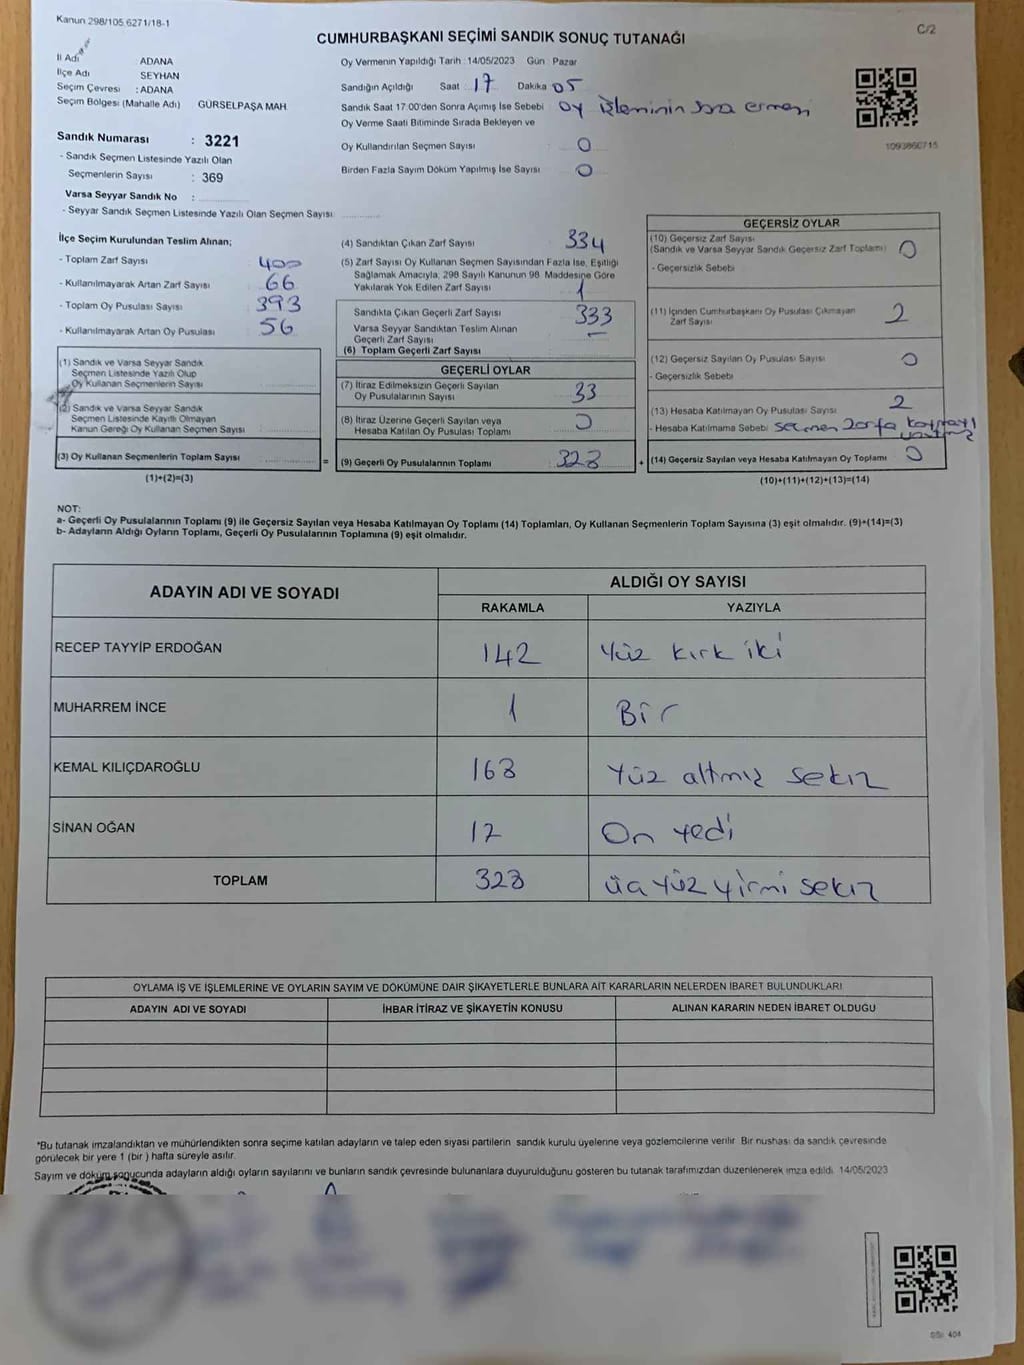 Kanun 298/105.6271/18-1
C/2
CUMHURBAŞKANI SEÇİMİ SANDIK SONUÇ TUTANAĞI
İl Adı : ADANA
İlçe Adı SEYHAN
Seçim Çevresi : ADANA
Seçim Bölgesi (Mahalle Adı) GÜRSELPAŞA MAH.
Sandık Numarası : 3221
- Sandık Seçmen Listesinde Yazılı Olan
Seçmenlerin Sayısı : 369
Varsa Seyyar Sandık No :
- Seyyar Sandık Seçmen Listesinde Yazılı Olan Seçmen Sayısı
Oy Vermenin Yapıldığı Tarih :14/05/2023 Gün : Pazar
Sandığın Açıldığı Saat 17 Dakika 05
Sandık Saat 17:00'den Sonra Açımış İse Sebebi oy işleminin sona ermesi
Oy Verme Saati Bitiminde Sırada Bekleyen ve
Oy Kullandırılan Seçmen Sayısı 0
Birden Fazla Sayım Döküm Yapılmış İse Sayısı 0
1093860715
İlçe Seçim Kurulundan Teslim Alınan;
- Toplam Zarf Sayısı 400
- Kullanılmayarak Artan Zarf Sayısı 66
- Toplam Oy Pusulası Sayısı 393
- Kullanılmayarak Artan Oy Pusulası 56
(1) Sandık ve Varsa Seyyar Sandık
Seçmen Listesinde Yazılı Olup
Oy Kullanan Seçmenlerin Sayısı
(2) Sandık ve Varsa Seyyar Sandık
Seçmen Listesinde Kayıtlı Olmayan
Kanun Gereği Oy Kullanan Seçmen Sayısı
(3) Oy Kullanan Seçmenlerin Toplam Sayısı =
(1)+(2)=(3)
(4) Sandıktan Çıkan Zarf Sayısı 334
(5) Zarf Sayısı Oy Kullanan Seçmen Sayısından Fazla İse, Eşitliği
Sağlamak Amacıyla, 298 Sayılı Kanunun 98. Maddesine Göre
Yakılarak Yok Edilen Zarf Sayısı 1
Sandıkta Çıkan Geçerli Zarf Sayısı 333
Varsa Seyyar Sandıktan Teslim Alınan
Geçerli Zarf Sayısı –
(6) Toplam Geçerli Zarf Sayısı
GEÇERLİ OYLAR
(7) İtiraz Edilmeksizin Geçerli Sayılan
Oy Pusulalarının Sayısı 33
(8) İtiraz Üzerine Geçerli Sayılan veya
Hesaba Katılan Oy Pusulası Toplamı 0
(9) Geçerli Oy Pusulalarının Toplamı 328 +
GEÇERSİZ OYLAR
(10) Geçersiz Zarf Sayısı
(Sandık ve Varsa Seyyar Sandık Geçersiz Zarf Toplamı) 0
- Geçersizlik Sebebi
(11) İçinden Cumhurbaşkanı Oy Pusulası Çıkmayan
Zarf Sayısı 2
(12) Geçersiz Sayılan Oy Pusulası Sayısı 0
- Geçersizlik Sebebi
(13) Hesaba Katılmayan Oy Pusulası Sayısı 2
- Hesaba Katılmama Sebebi seçmen zarfa koymayı
unutmuş
(14) Geçersiz Sayılan veya Hesaba Katılmayan Oy Toplamı 0
(10)+(11)+(12)+(13)=(14)
NOT:
a- Geçerli Oy Pusulalarının Toplamı (9) ile Geçersiz Sayılan veya Hesaba Katılmayan Oy Toplamı (14) Toplamları, Oy Kullanan Seçmenlerin Toplam Sayısına (3) eşit olmalıdır. (9)+(14)=(3)
b- Adayların Aldığı Oyların Toplamı, Geçerli Oy Pusulalarının Toplamına (9) eşit olmalıdır.
ADAYIN ADI VE SOYADI ALDIĞI OY SAYISI
RAKAMLA YAZIYLA
RECEP TAYYİP ERDOĞAN 142 Yüz kırk iki
MUHARREM İNCE 1 Bir
KEMAL KILIÇDAROĞLU 168 Yüz altmış sekiz
SİNAN OĞAN 17 On yedi
TOPLAM 328 üç yüz yirmi sekiz
OYLAMA İŞ VE İŞLEMLERİNE VE OYLARIN SAYIM VE DÖKÜMÜNE DAİR ŞİKAYETLERLE BUNLARA AİT KARARLARIN NELERDEN İBARET BULUNDUKLARI
ADAYIN ADI VE SOYADI İHBAR İTİRAZ VE ŞİKAYETİN KONUSU ALINAN KARARIN NEDEN İBARET OLDUĞU
*Bu tutanak imzalandıktan ve mühürlendikten sonra seçime katılan adayların ve talep eden siyasi partilerin sandık kurulu üyelerine veya gözlemcilerine verilir. Bir nushası da sandık çevresinde
görülecek bir yere 1 (bir ) hafta süreyle asılır.
Sayım ve döküm sonucunda adayların aldığı oyların sayılarını ve bunların sandık çevresinde bulunanlara duyurulduğunu gösteren bu tutanak tarafımızdan düzenlenerek imza edildi. 14/05/2023